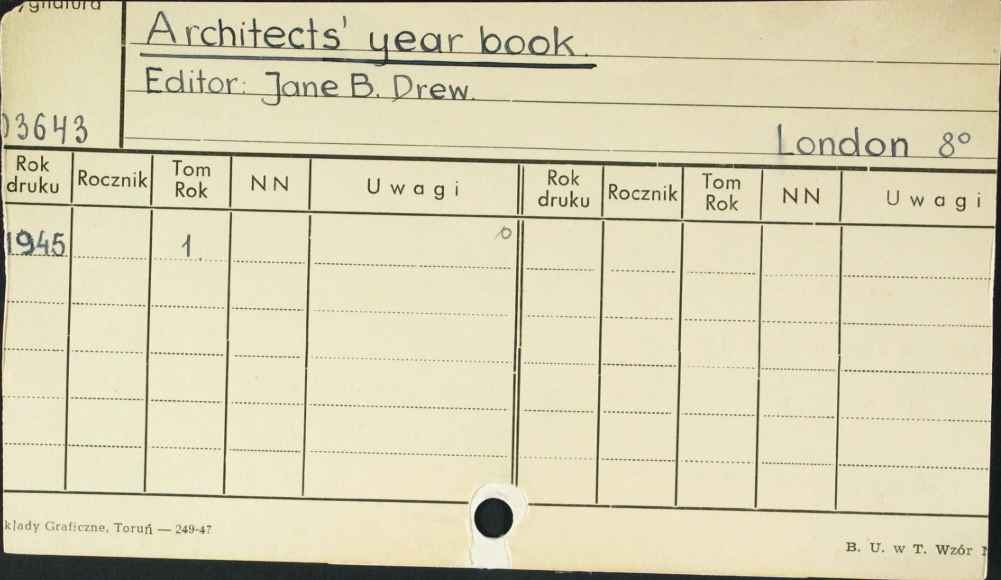 ygnatura
Architects' year book.
Editor: Jane B. Drew.
03643
London 8°
Rok druku Rocznik Tom Rok NN Uwagi Rok druku Rocznik Tom Rok NN Uwagi
1945 1.
kłady Graficzne, Toruń — 249-47
B. U. w T. Wzór